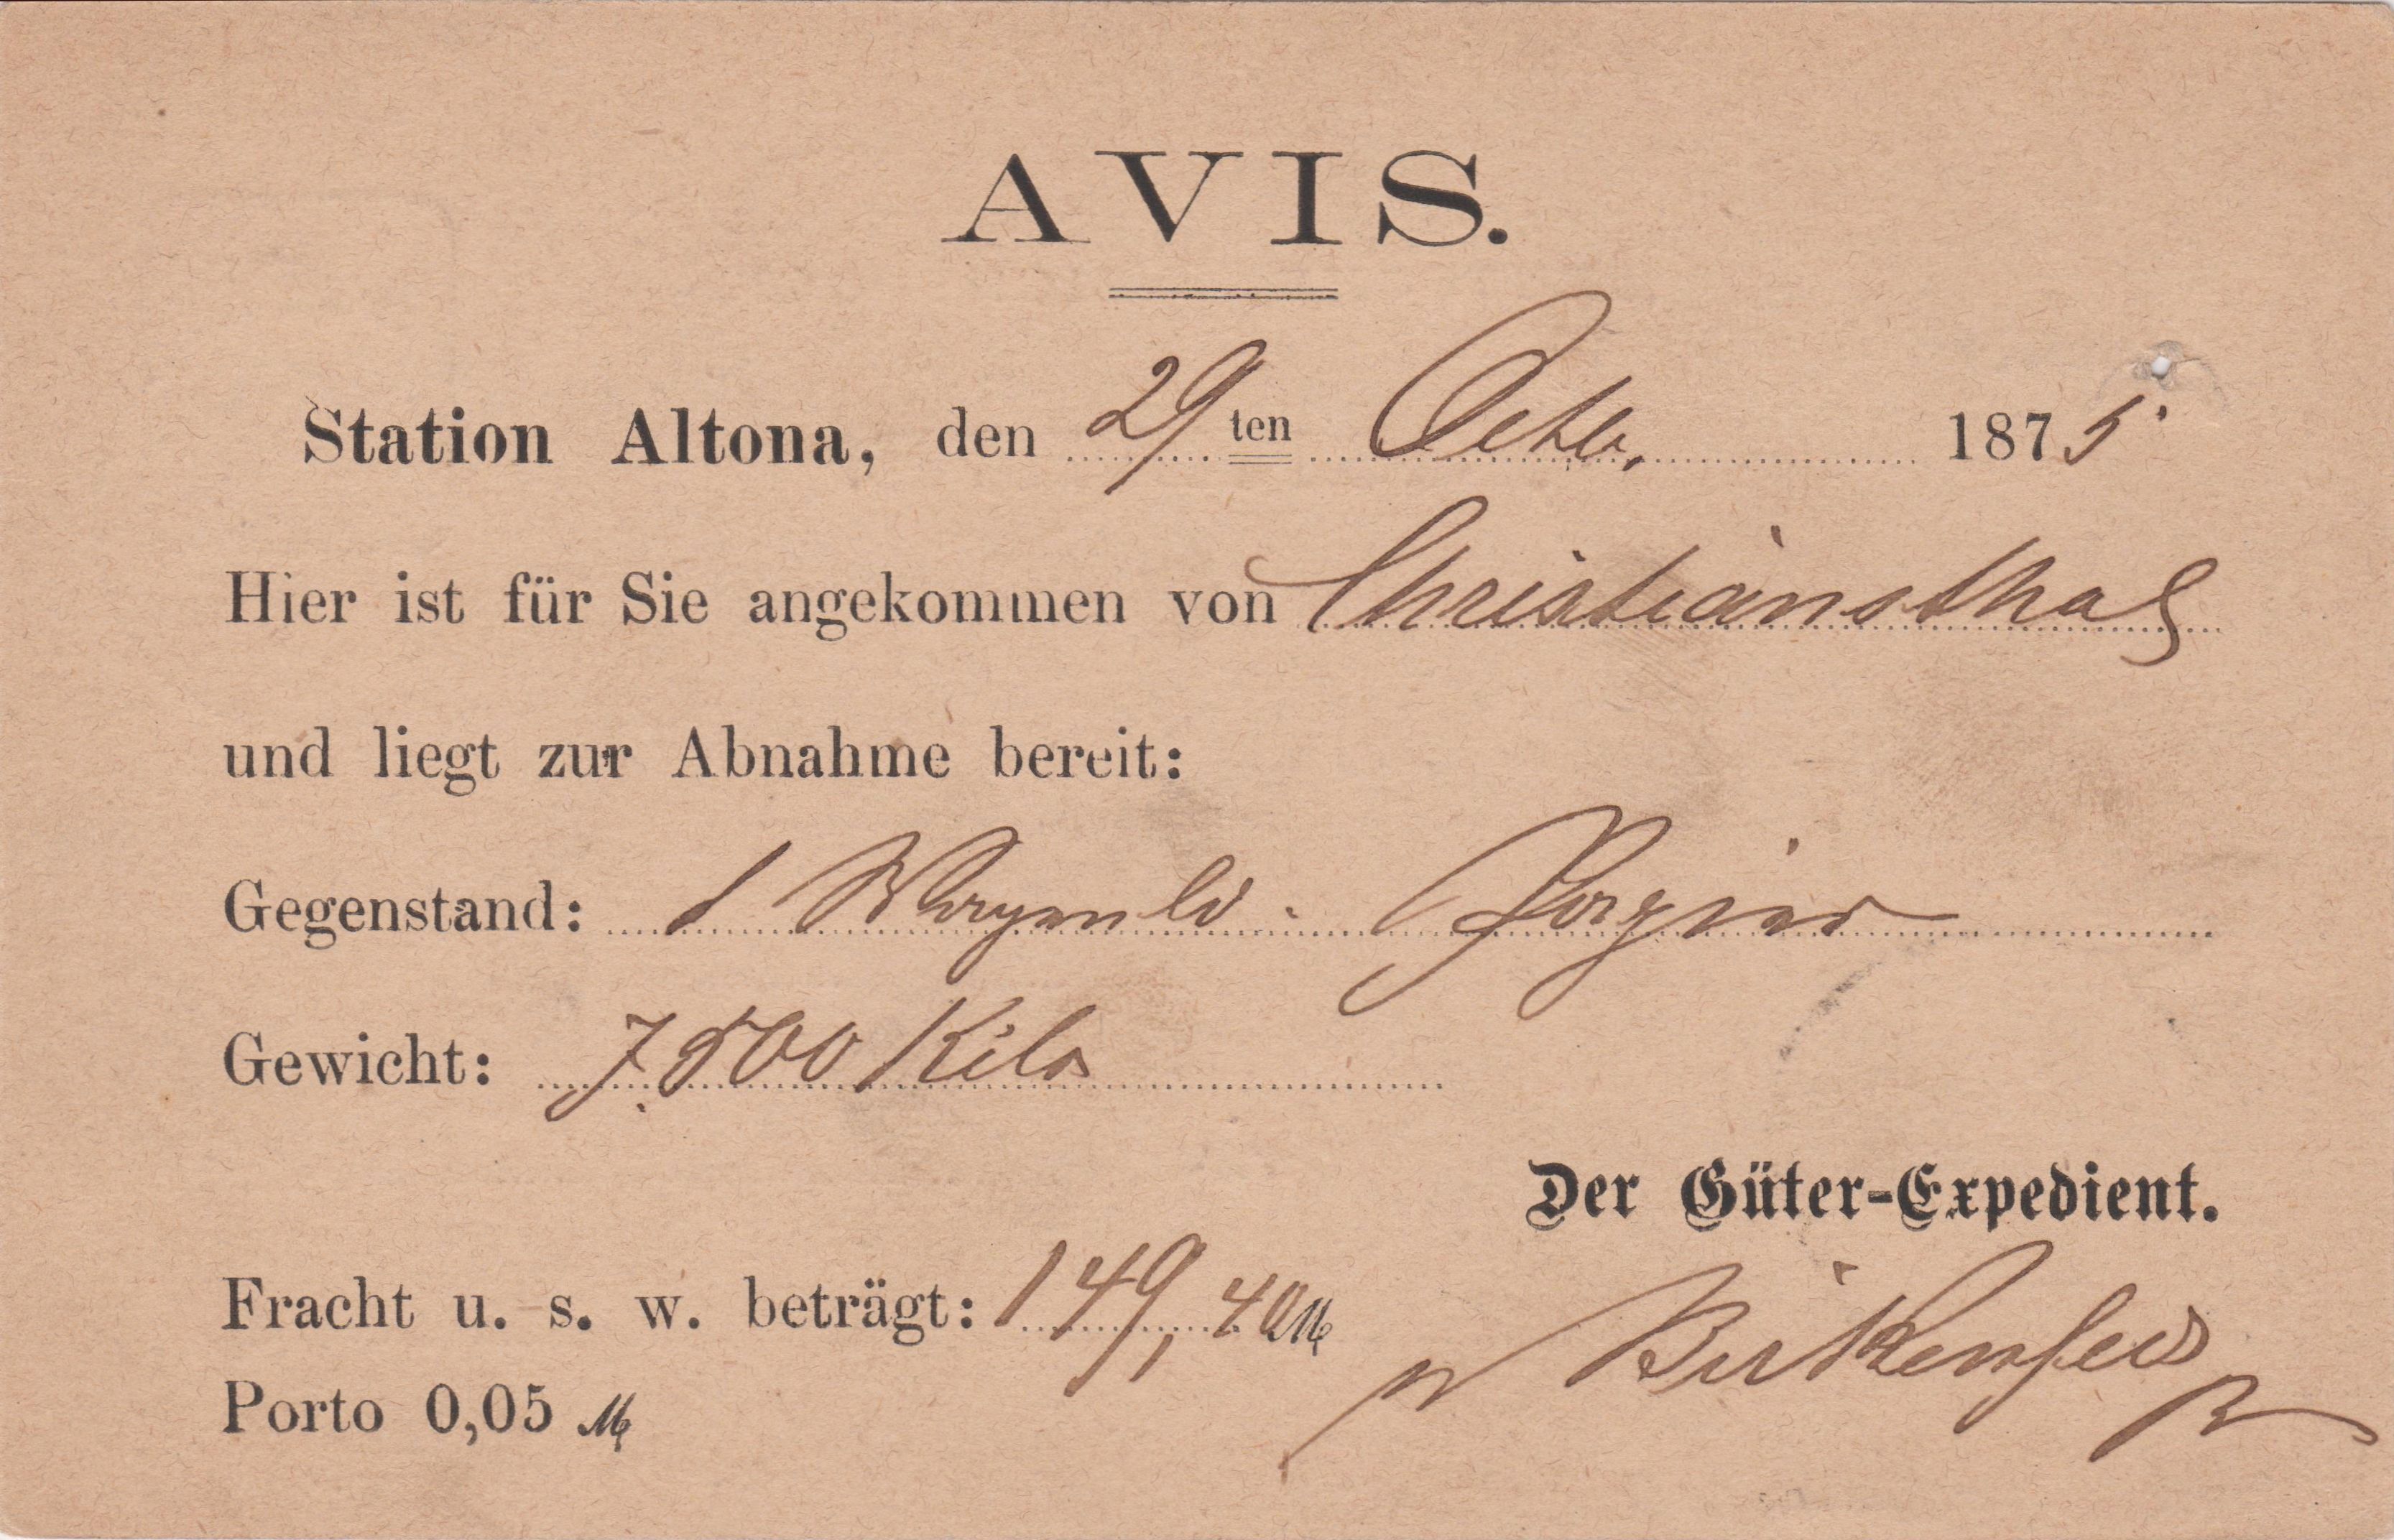 AVIS.
Station Altona, den 29ten Octb. 1875
Hier ist für Sie angekommen von Christiansthal
und liegt zur Abnahme bereit:
Gegenstand: 1 Wagenld. Papier
Gewicht: 7500 Kilo
Der Güter-Expedient.
Fracht u. s. w. beträgt: 149,40 M
Porto 0,05 M